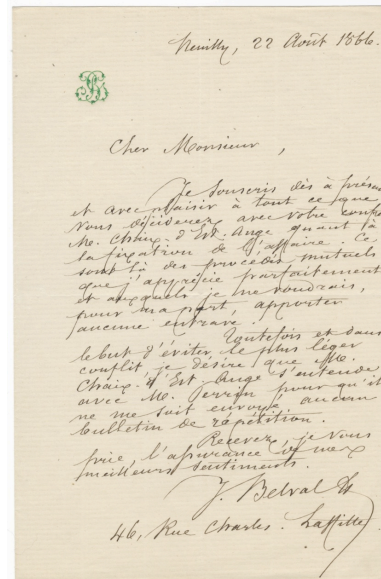 Neuilly, 22 Août 1866.
Cher Monsieur,
Je souscris dès à présent
et avec plaisir à tout ce que
vous déciderez avec votre confrère
M. Chaix-d'Est-Ange quant à
la fixation de l'affaire. Ce
sont là des procédés mutuels
que j'apprécie parfaitement
et auxquels je ne voudrais,
pour ma part, apporter
aucune entrave.
Toutefois et dans
le but d'éviter le plus léger
conflit je désire que M.
Chaix-d'Est-Ange s'entende
avec M. Perrin pour qu'il
ne me soit envoyé aucun
bulletin de répétition.
Recevez, je vous
prie, l'assurance de mes
meilleurs sentiments.
J. Belval
46, Rue Charles Laffitte